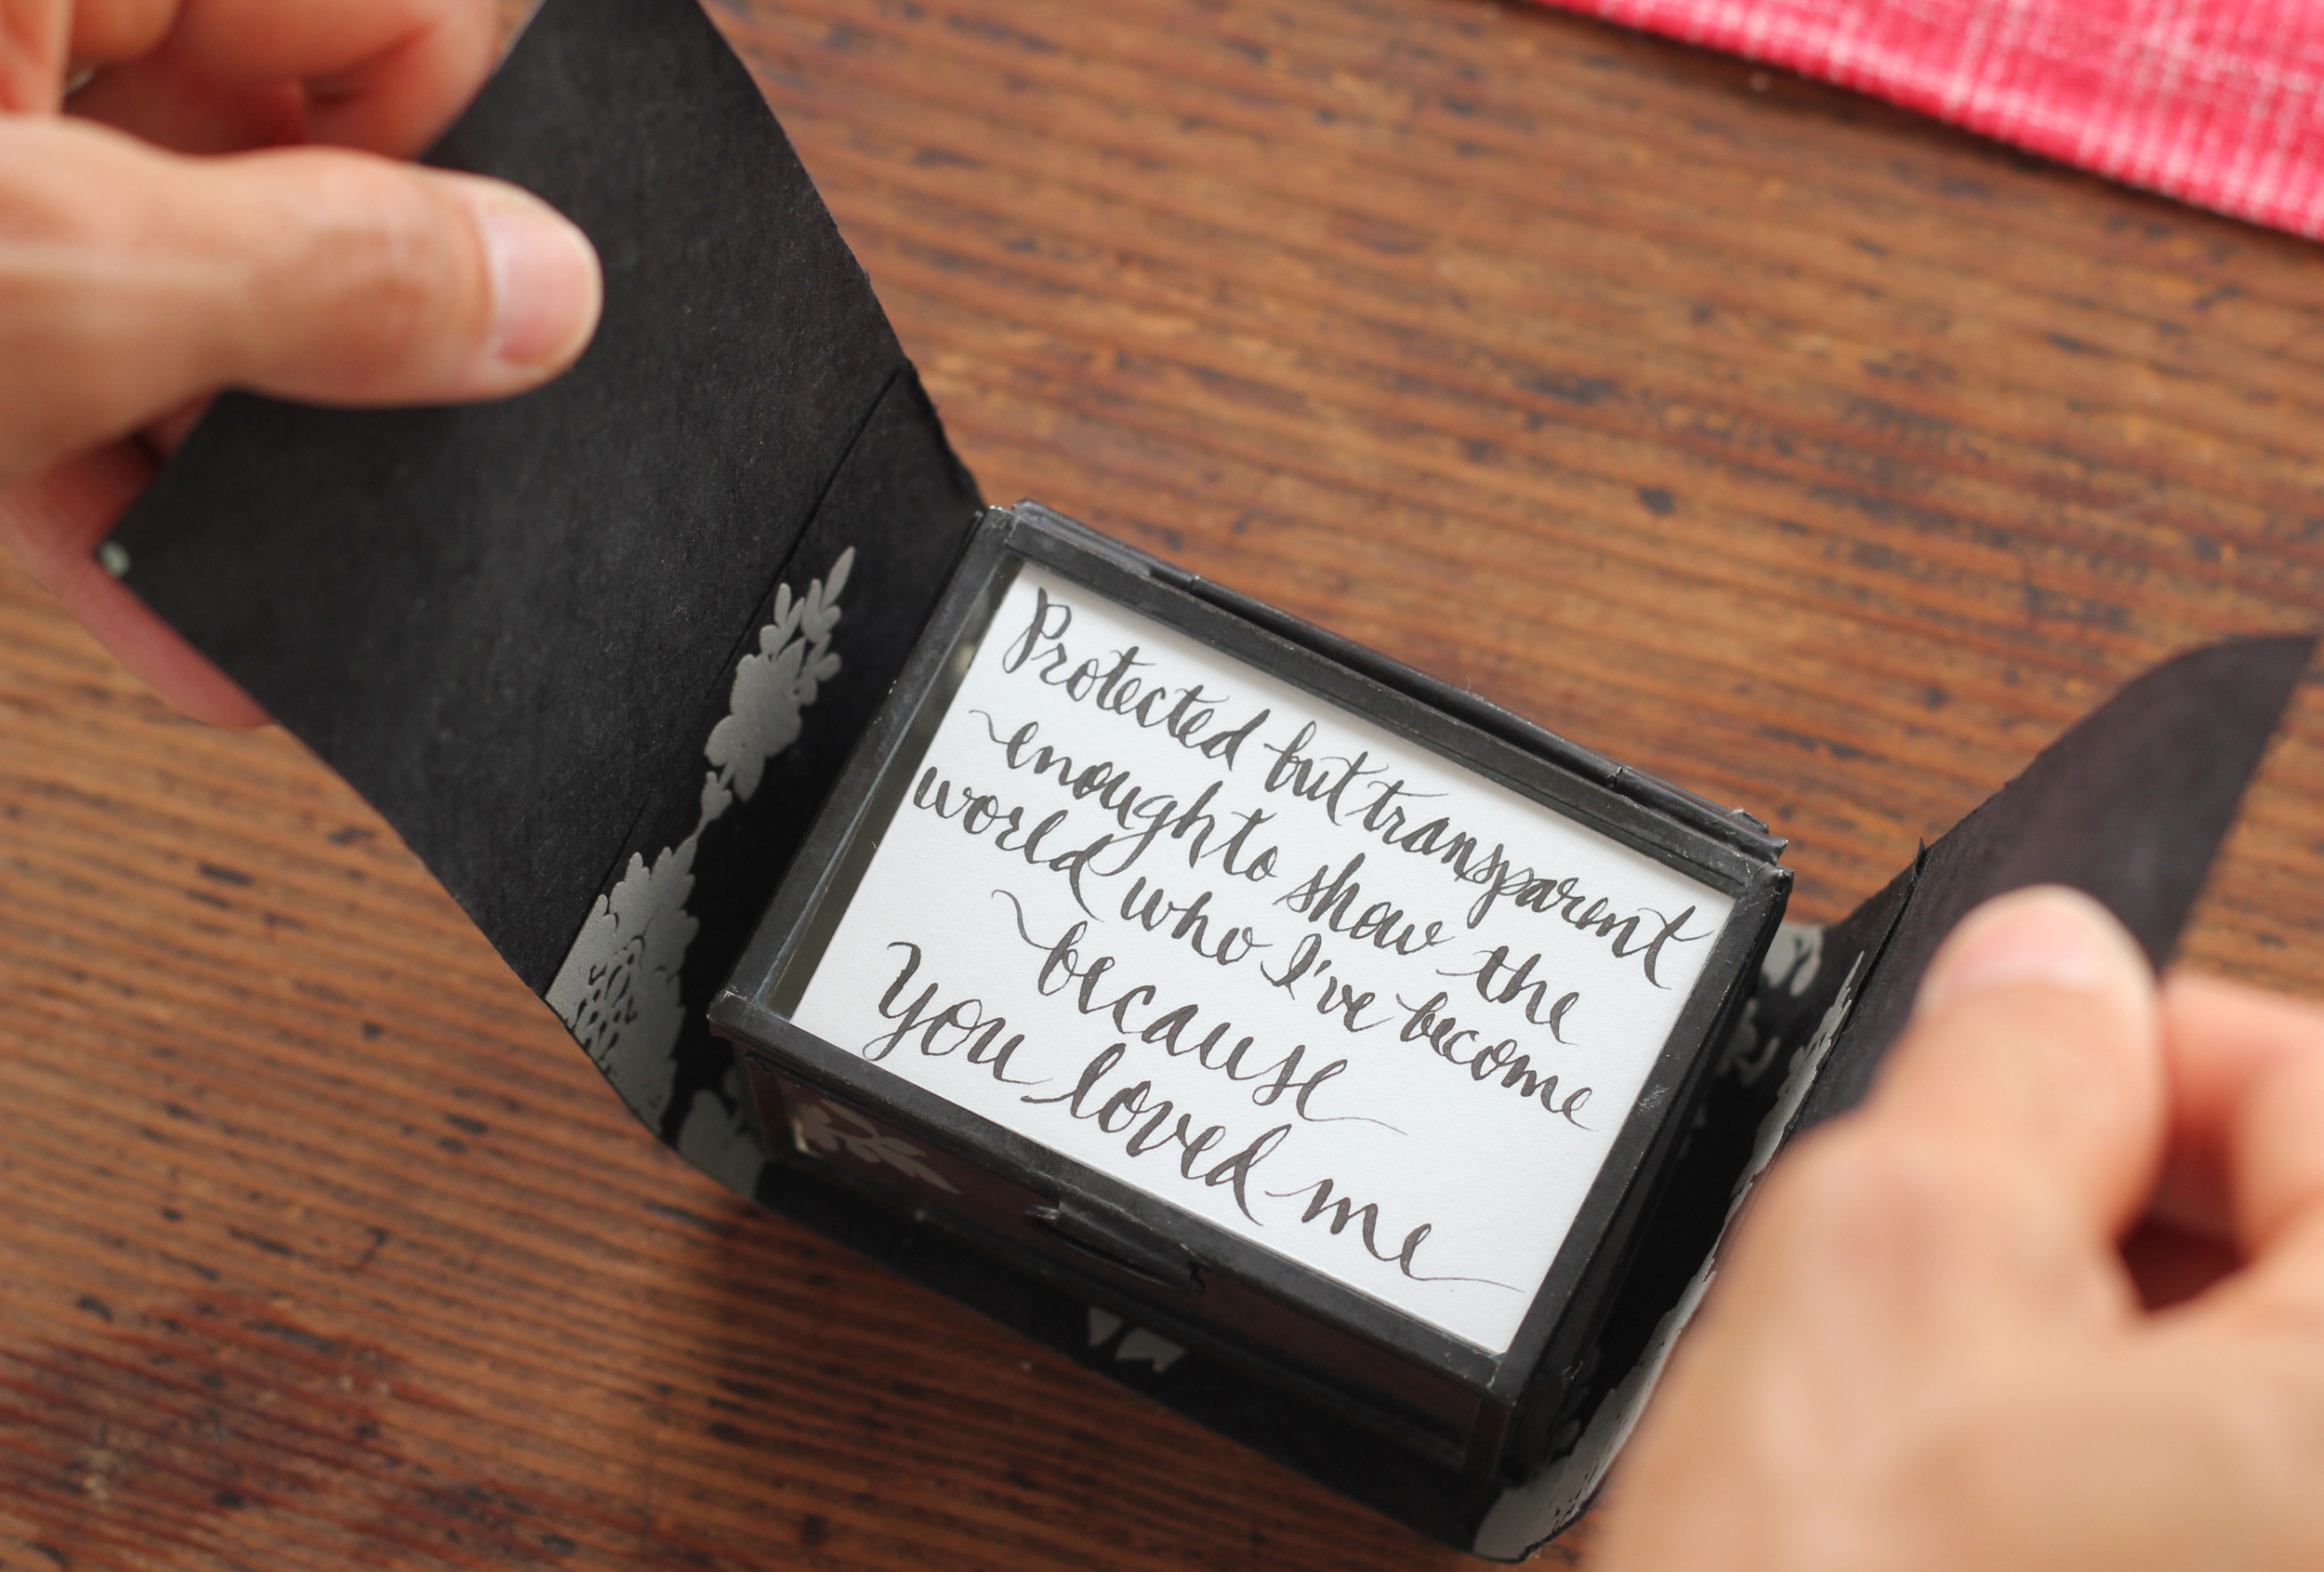 Protected but transparent
enough to show the
world who I've become
because
you loved me